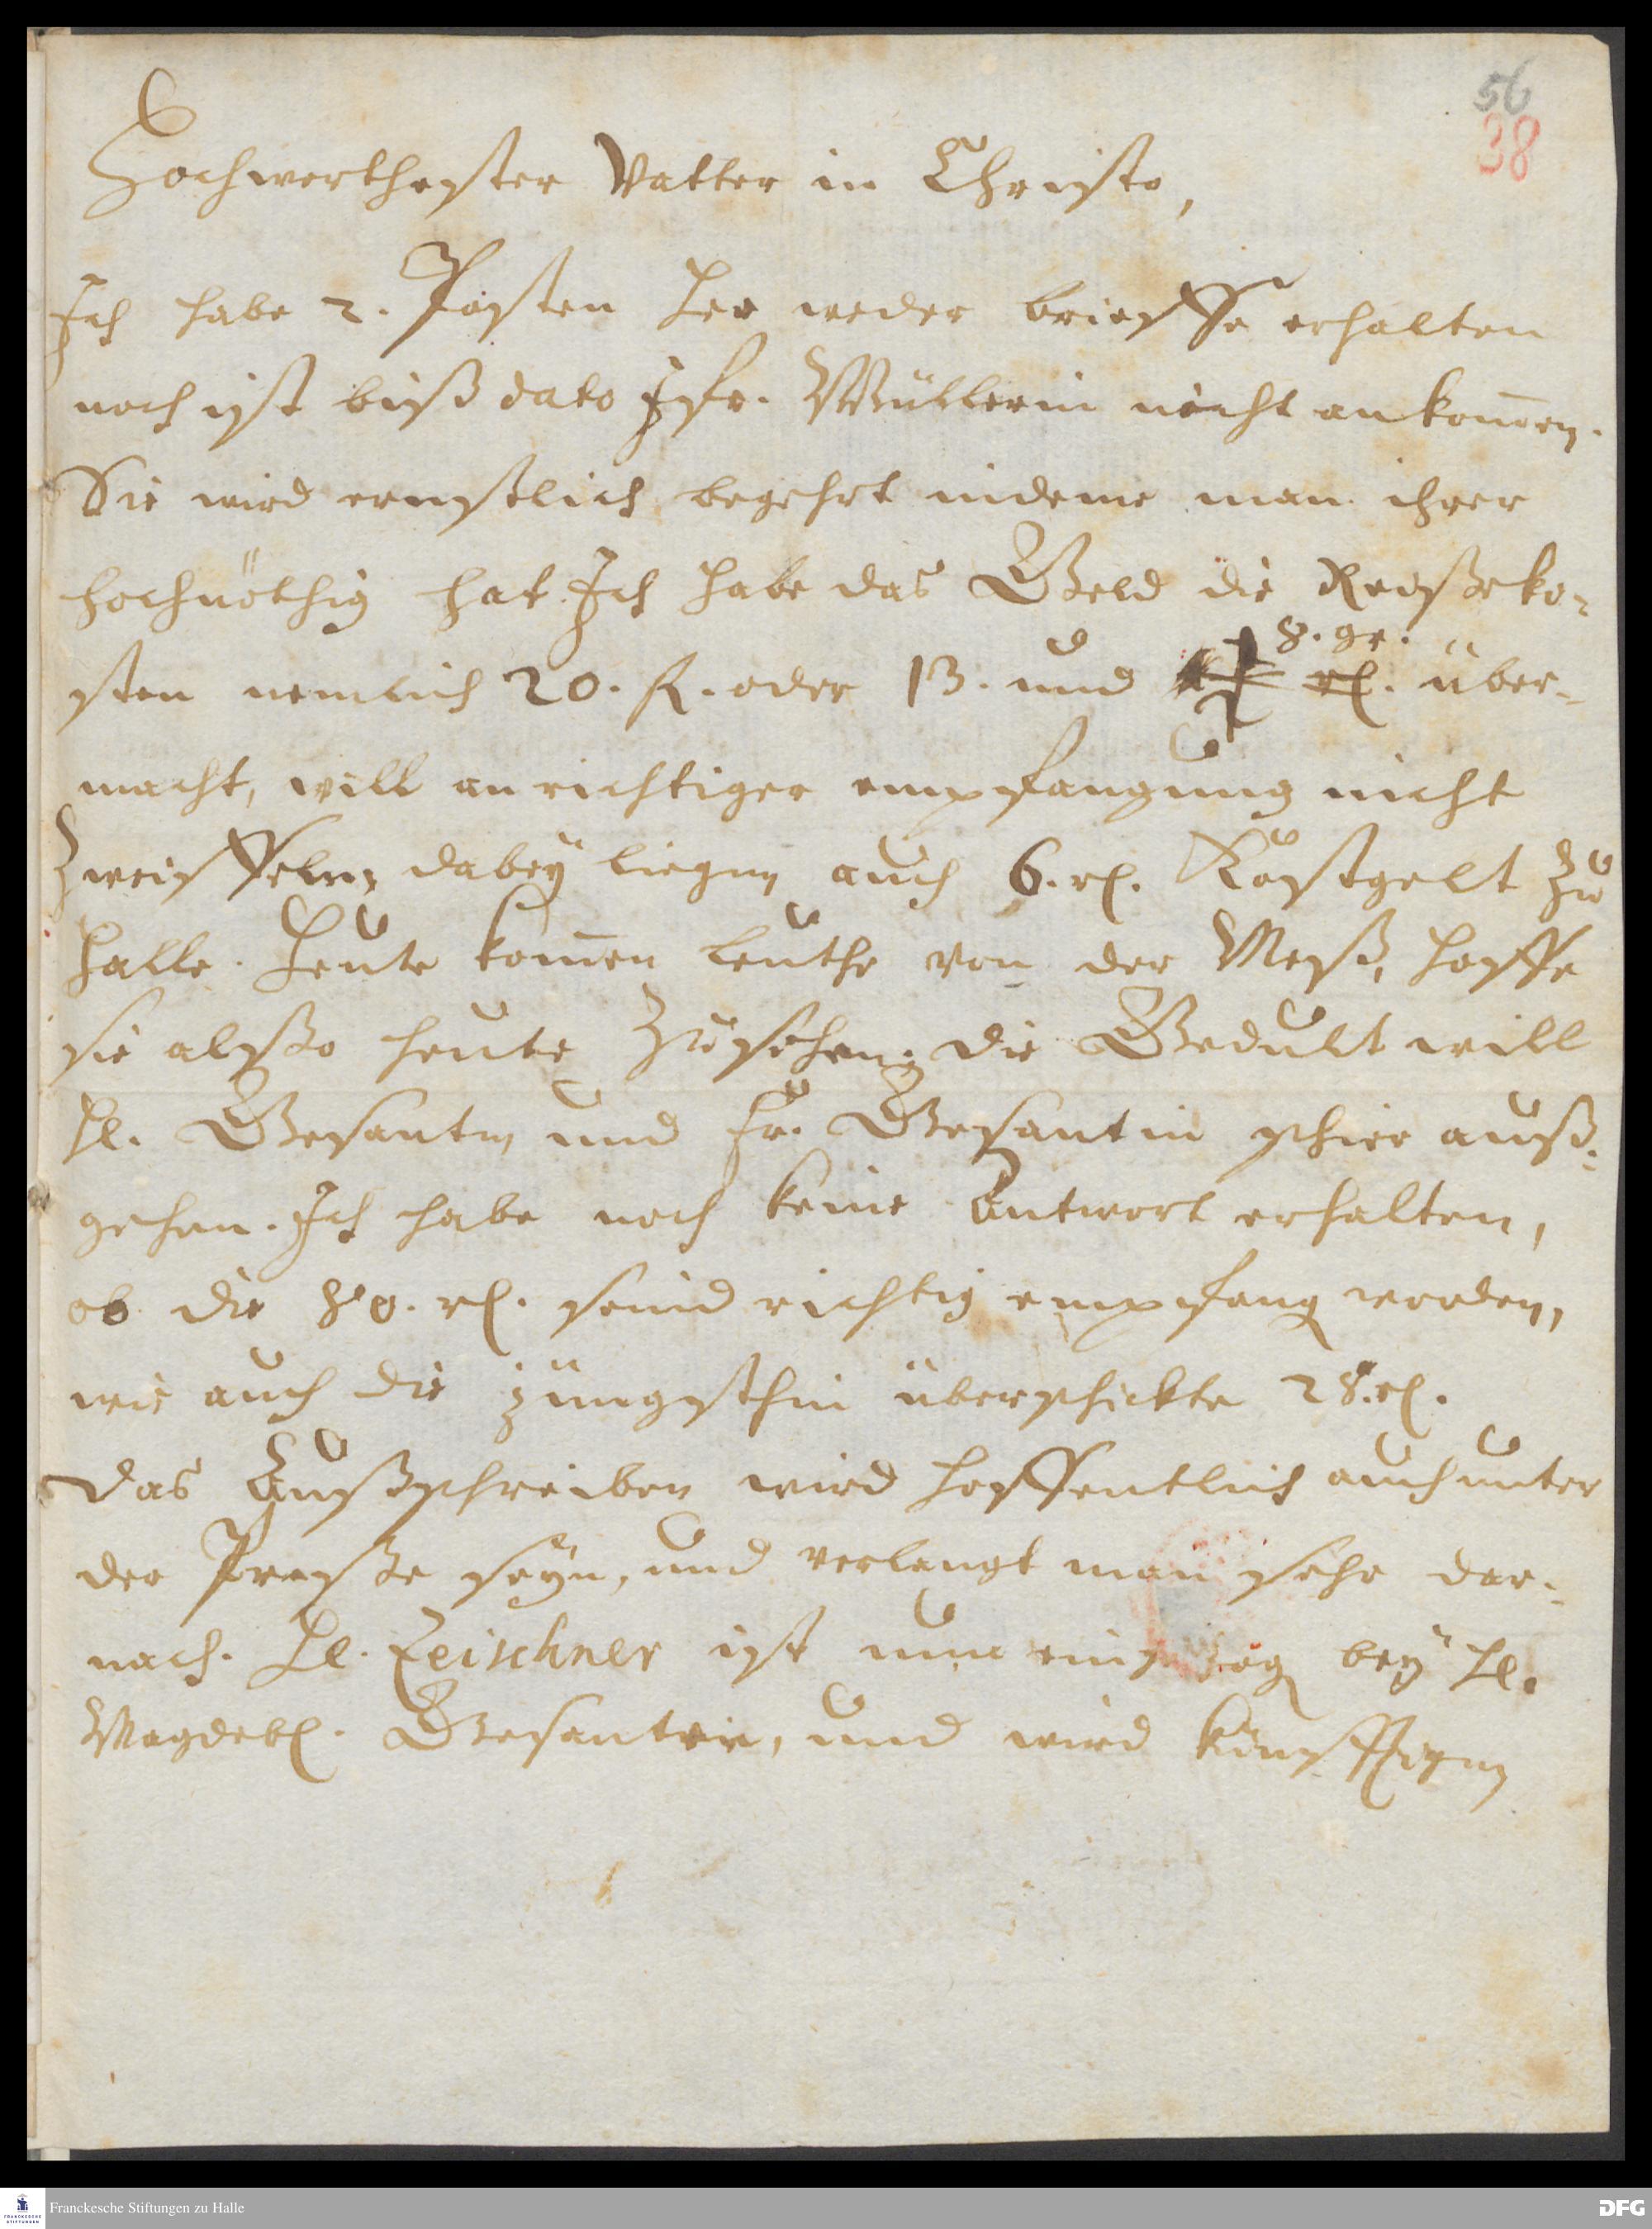 56
38
Hochwerthester Vatter in Christo,
Ich habe 2. Posten her weder brieffe erhalten
noch ist biß dato Jgfr. Müllerin nicht ankom̄en.
Sie wird ernstlich begehrt indeme man ihrer
hochnöthig hat. Ich habe das Geld die Reyßeko-
8. gr.
sten nemlich 20. fl. oder 13. und rl. über-
macht, will an richtiger empfangung nicht
zweiffeln, dabey liegen auch 6. rl. Kostgelt zu
Halle. Heute kom̄en leuthe von der Meß, hoffe
sie alßo heute zusehen. die Gedult will
Hl. Gesanten und Fr. Gesantin schier auß-
gehen. Ich habe noch keine Antwort erhalten,
ob die 80. rl. seind richtig empfang worden,
wie auch die jüngsthin überschickte 28. rl.
das Außschreiben wird hoffentlich auch unter
der Preße seyn, und verlangt man sehr dar-
nach. Hl. Zeischner ist nun bey Hl.
Magdebl. Gesanten, und wird künfftigen
Franckesche Stiftungen zu Halle
DFG